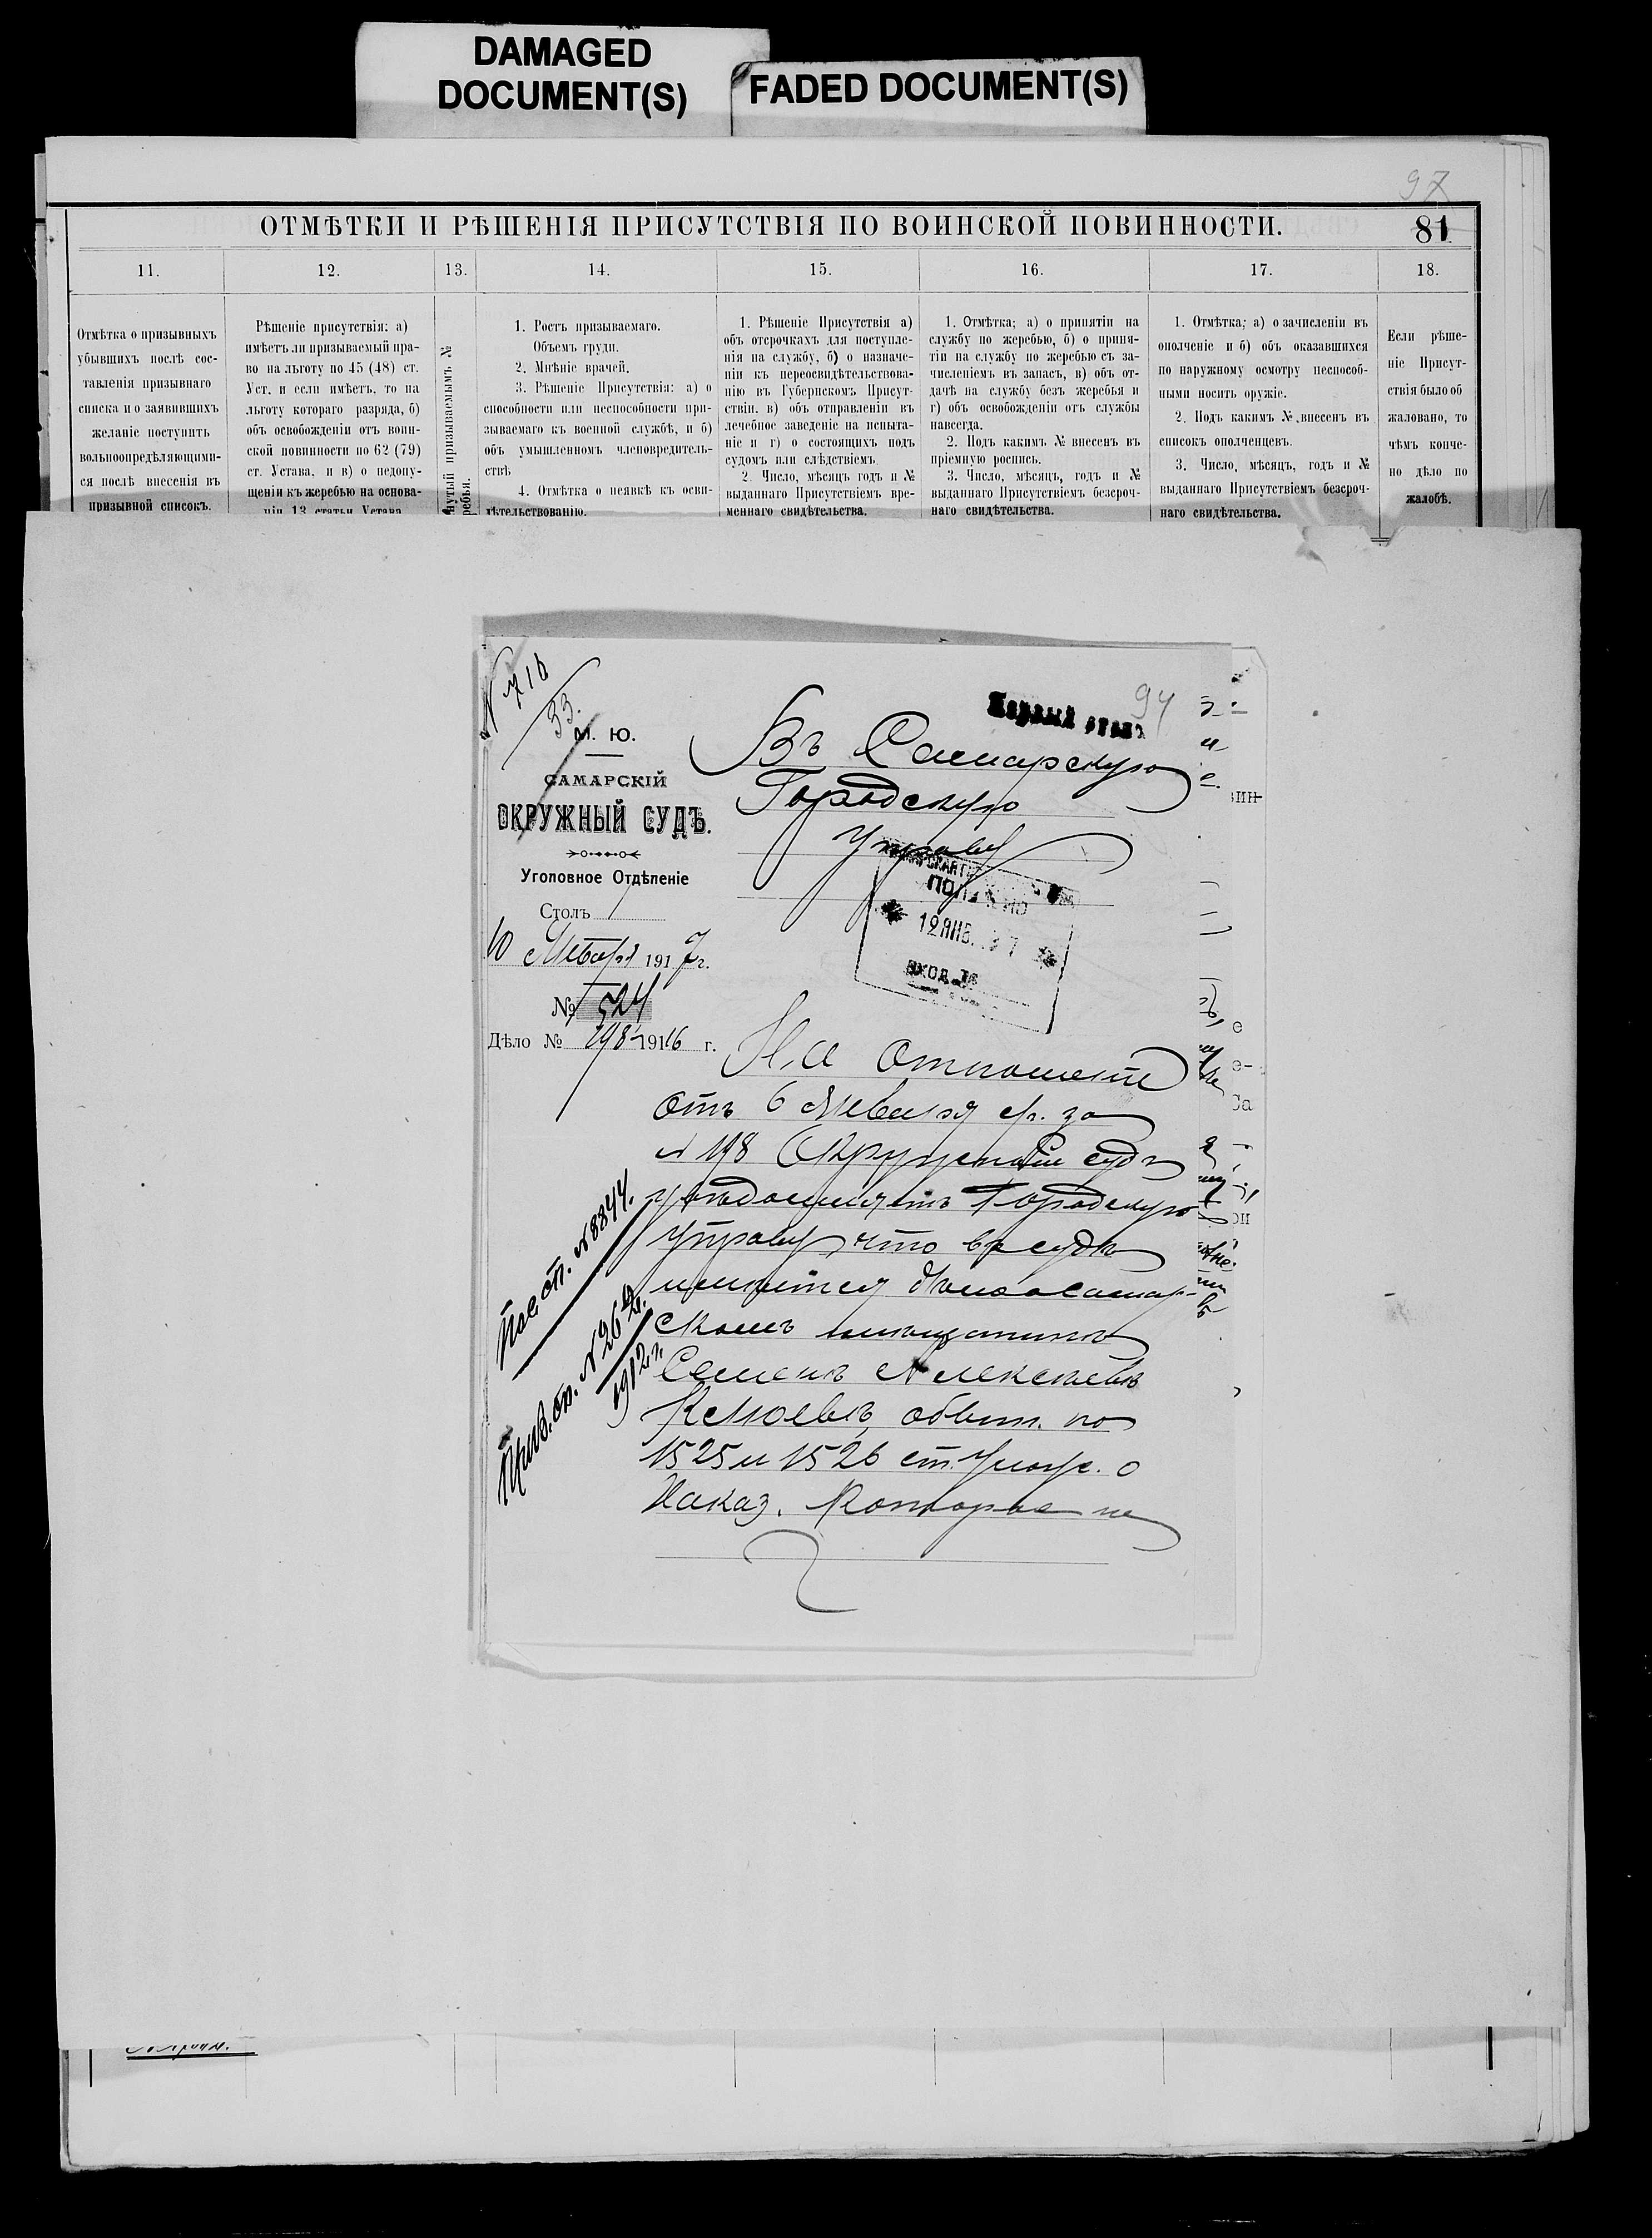 DAMAGED
DOCUMENT(S)
FADED DOCUMENT(S)
97
ОТМѢТКИ И РѢШЕНІЯ ПРИСУТСТВІЯ ПО ВОИНСКОЙ ПОВИННОСТИ.
81
11.
Отмѣтка о призывныхъ
убывшихъ послѣ сос-
тавленія призывнаго
списка и о заявившихъ
желаніе поступить
вольноопредѣляющими-
ся послѣ внесенія въ
призывной списокъ.
12.
Рѣшеніе присутствія: а)
имѣетъ ли призываемый пра-
во на льготу по 45 (48) ст.
Уст. и если имѣетъ, то на
льготу котораго разряда, б)
объ освобожденіи отъ воин-
ской повинности по 62 (79)
ст. Устава, и в) о недопу-
щеніи къ жеребью на основа-
ніи 13 статьи Устава
13.
нутый призываемымъ №
ребья.
14.
1. Ростъ призываемаго.
Объемъ груди.
2. Мнѣніе врачей.
3. Рѣшеніе Присутствія: а) о
способности или неспособности при-
зываемаго къ военной службѣ, и б)
объ умышленномъ членовредитель-
ствѣ
4. Отмѣтка о неявкѣ къ осви-
дѣтельствованію.
15.
1. Рѣшеніе Присутствія а)
объ отсрочкахъ для поступле-
нія на службу, б) о назначе-
ніи къ переосвидѣтельствова-
нію въ Губернскомъ Присут-
ствіи. в) объ отправленіи въ
лечебное заведеніе на испыта-
ніе и г) о состоящихъ подъ
судомъ или слѣдствіемъ
2. Число, мѣсяцъ годъ и №
выданнаго Присутствіемъ вре-
меннаго свидѣтельства.
16.
1. Отмѣтка; а) о принятіи на
службу по жеребью, б) о приня-
тіи на службу по жеребью съ за-
численіемъ въ запасъ, в) объ от-
дачѣ на службу безъ жеребья и
г) объ освобожденіи отъ службы
навсегда.
2. Подъ какимъ № внесенъ въ
пріемную роспись.
3. Число, мѣсяцъ, годъ и №
выданнаго Присутствіемъ безсроч-
наго свидѣтельства.
17.
1. Отмѣтка; а) о зачисленіи въ
ополченіе и б) объ оказавшихся
по наружному осмотру неспособ-
ными носить оружіе.
2. Подъ какимъ №, внесенъ въ
списокъ ополченцевъ.
3. Число, мѣсяцъ, годъ и №
выданнаго Присутствіемъ безсроч-
наго свидѣтельства.
18.
Если рѣше-
ніе Присут-
ствія было об
жаловано, то
чѣмъ конче-
но дѣло по
жалобѣ.
N 716
33.
М. Ю.
САМАРСКІЙ
ОКРУЖНЫЙ СУДЪ.
Уголовное Отдѣленіе
Столъ 1
10 Января 1917 г.
№ 524
Дѣло № 198 1916 г.
94
Первый столъ
Въ Самарскую
Городскую
Управу
ПОЛУЧЕНО
12 ЯНВ.
ВХОД. №
На отношеніе
отъ 6 Января с/г. за
N 198 Окружный судъ
увѣдомляетъ Городскую
Управу, что въ судѣ
имѣется дѣло о Самар-
скомъ мѣщанинѣ
Семенѣ Алексѣевѣ
обвин. по
1525 и 1526 ст. Улож. о
Наказ. Которое не
Пос. сп. N 8844.
Приз. сп. N 26
1912 г.